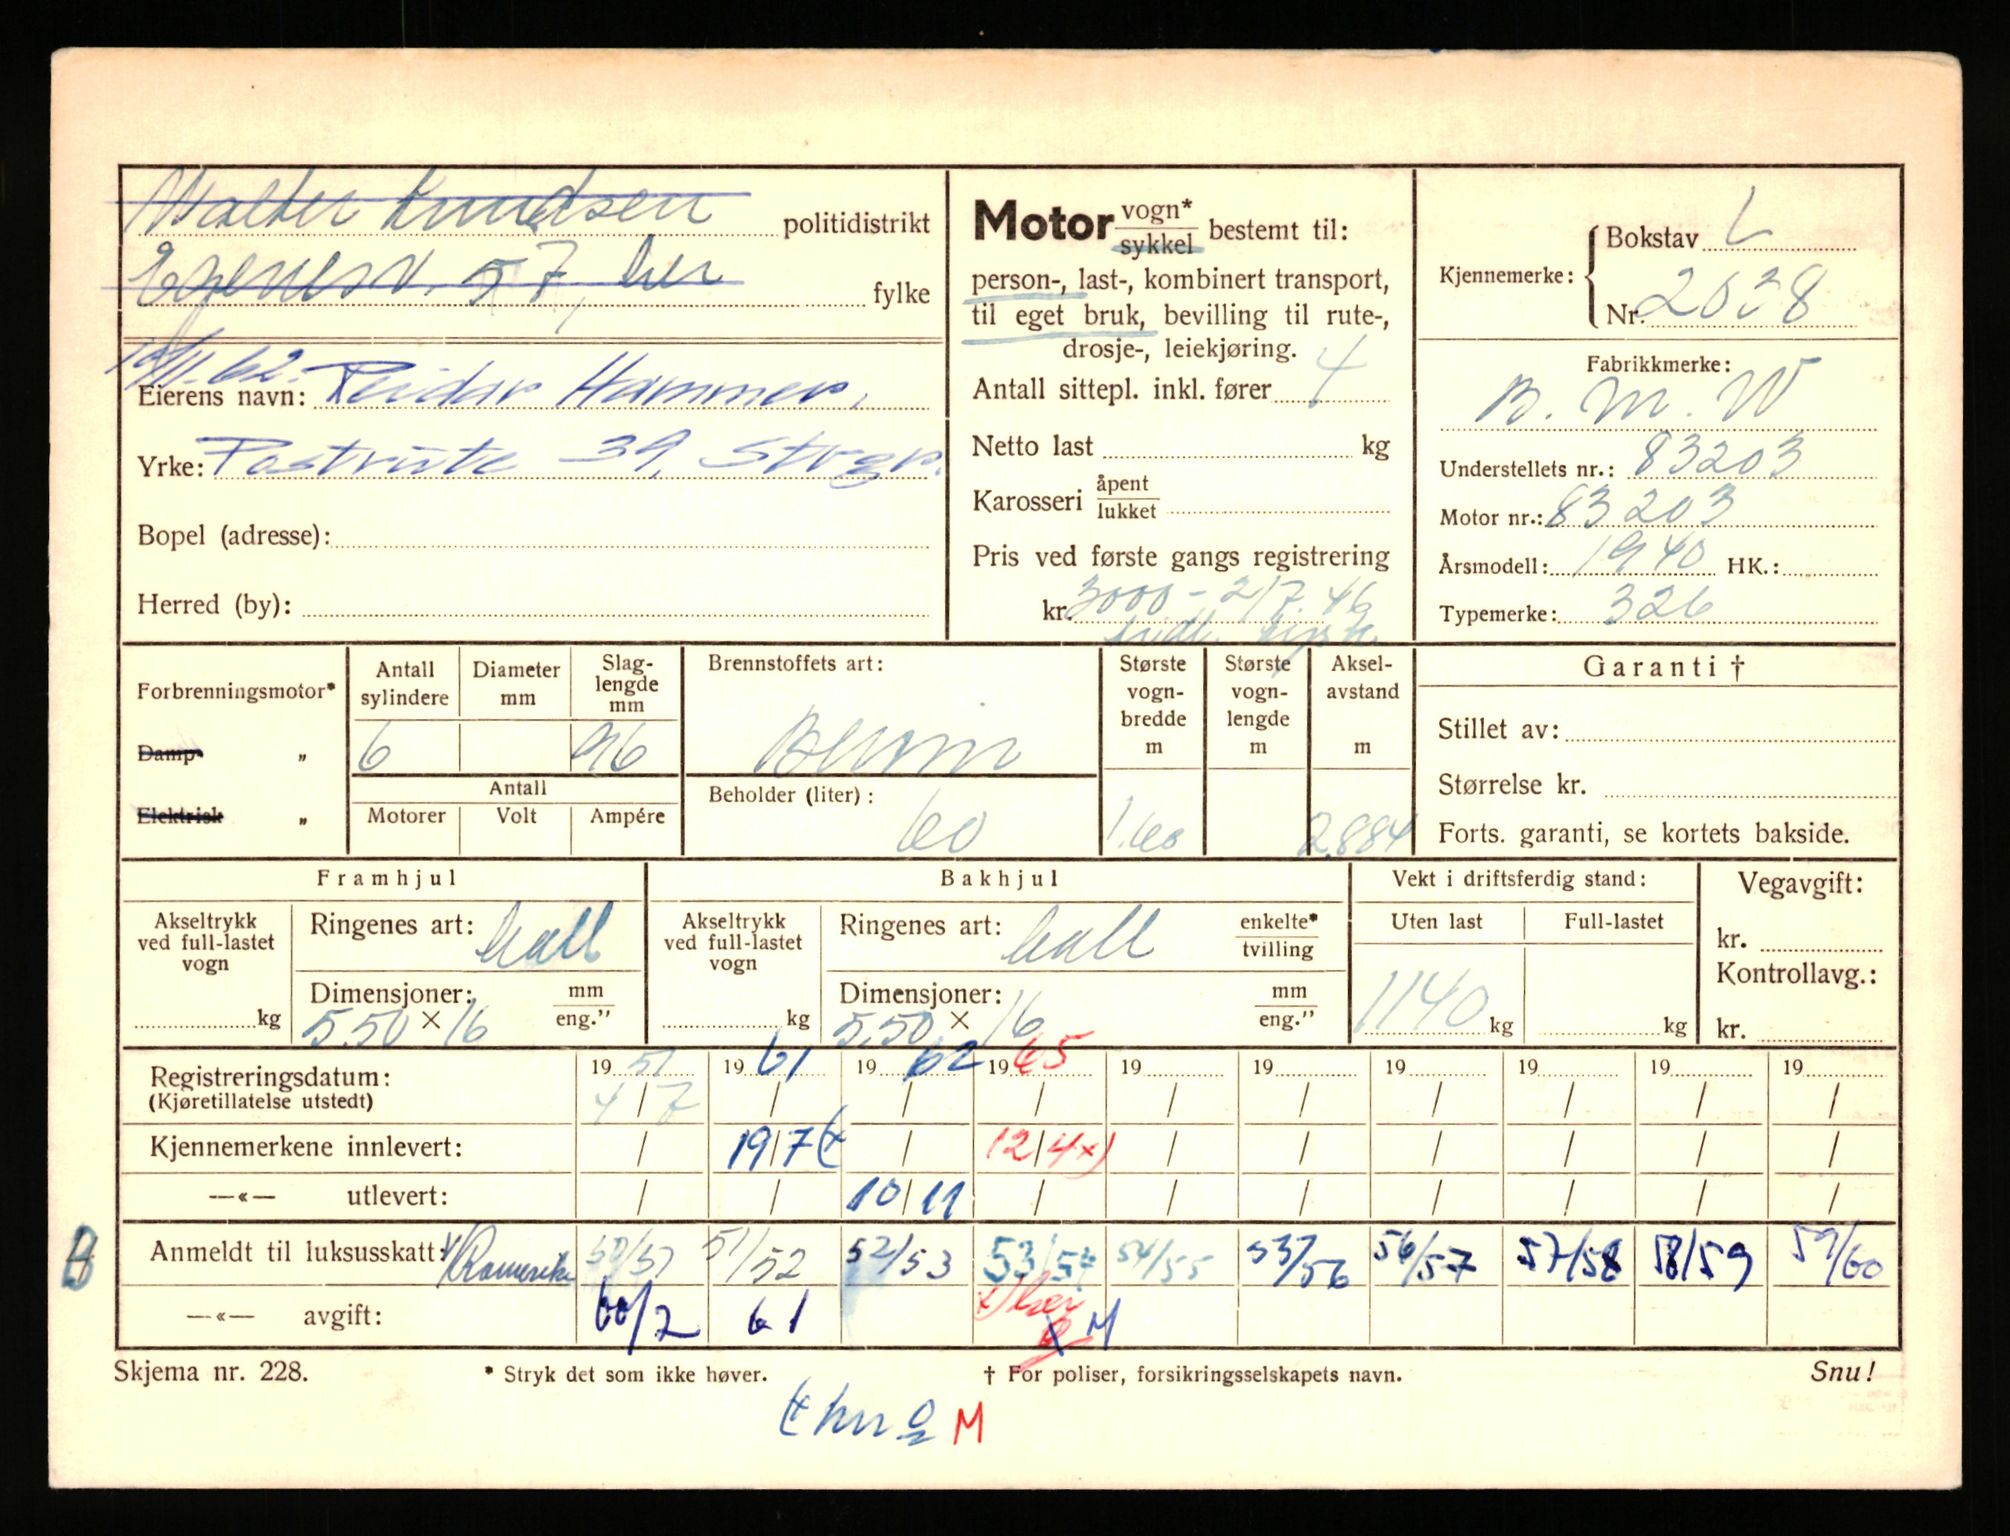 Walter Knudsen politidistrikt
57, her fylke
19/11-62.
Eierens navn: Reidar Hammer,
Yrke: Postrute 39, Stvgr.
Bopel (adresse):
Herred (by):
Motor vogn* / sykkel bestemt til:
person-, last-, kombinert transport,
til eget bruk, bevilling til rute-,
drosje-, leiekjøring.
Antall sittepl. inkl. fører 4
Netto last kg
Karosseri åpent / lukket
Pris ved første gangs registrering
kr. 3000 - 2/7. 46
Kjennemerke: Bokstav L
Nr. 2038
Fabrikkmerke:
B. M. W
Understellets nr.: 83203
Motor nr.: 83203
Årsmodell: 1940 HK.:
Typemerke: 326
Forbrenningsmotor*
Damp- „
Elektrisk „
Antall sylindere 6
Diameter mm
Slag-lengde mm 96
Antall
Motorer Volt Ampére
Brennstoffets art:
Bensin
Beholder (liter): 60
Største vogn-bredde m 1.60
Største vogn-lengde m
Aksel-avstand m 2.884
Garanti †
Stillet av:
Størrelse kr.
Forts. garanti, se kortets bakside.
Framhjul
Akseltrykk ved full-lastet vogn kg
Ringenes art: ball
Dimensjoner: mm / eng."
5.50 × 16
Bakhjul
Akseltrykk ved full-lastet vogn kg
Ringenes art: ball enkelte* / tvilling
Dimensjoner: mm / eng."
5.50 × 16
Vekt i driftsferdig stand:
Uten last Full-lastet
1140 kg kg
Vegavgift:
kr.
Kontrollavg.:
kr.
Registreringsdatum: 19 51 19 61 19 62 19 65 19 19 19 19 19 19
(Kjøretillatelse utstedt) 4/7 / / / / / / / / /
Kjennemerkene innlevert: / 19/7 (x / 12/4 x) / / / / / /
—«— utlevert: / / 10/11 / / / / / / /
Anmeldt til luksusskatt: 50/51 51/52 52/53 53/54 54/55 55/56 56/57 57/58 58/59 59/60
—«— avgift: 60/2 61 M
Skjema nr. 228. * Stryk det som ikke høver. † For poliser, forsikringsselskapets navn. Snu!
M